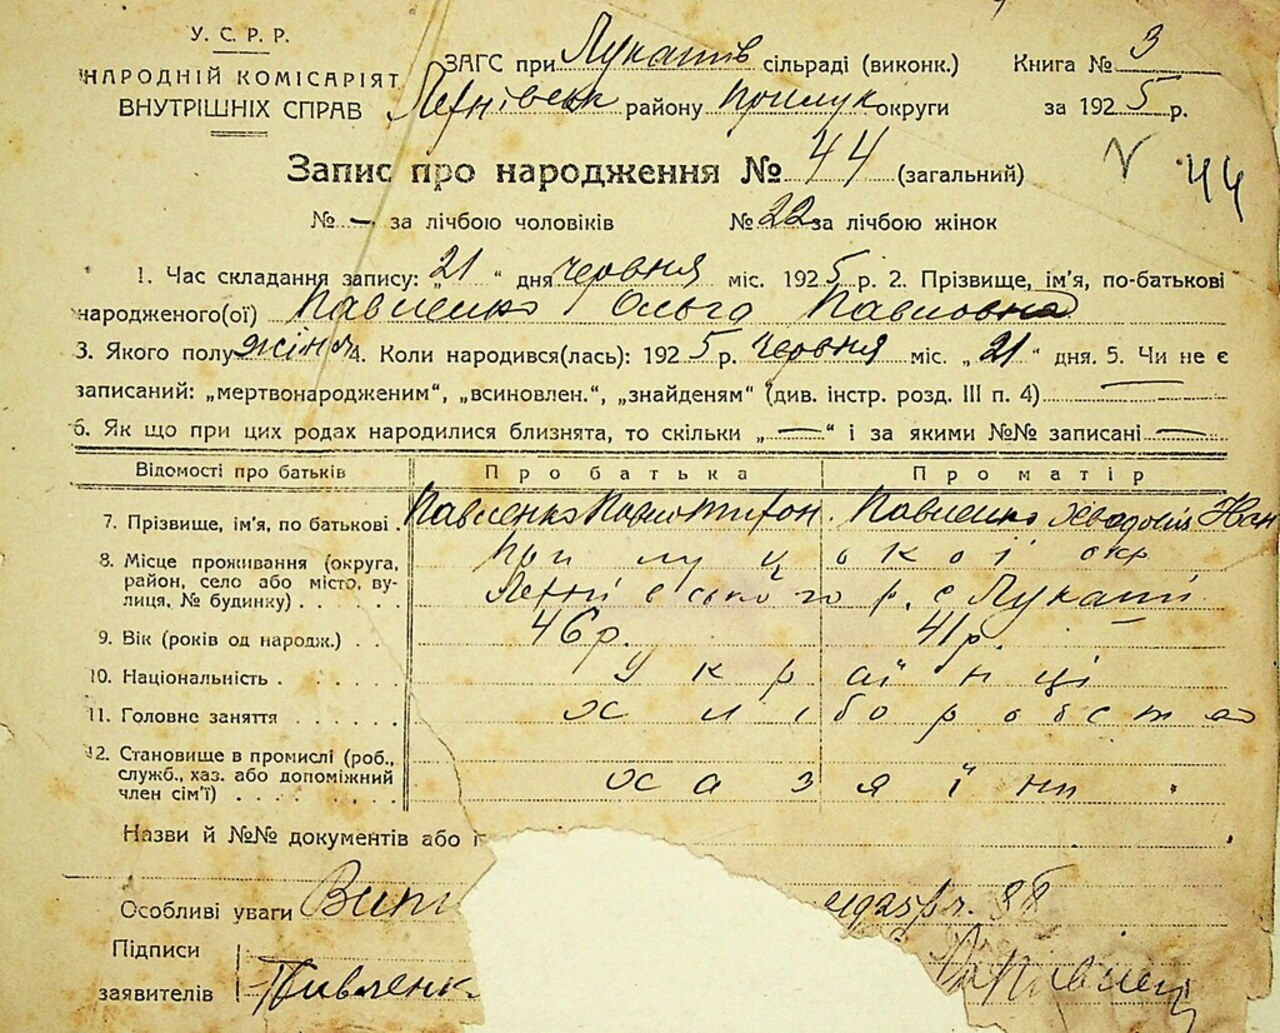 У. С. Р. Р.
НАРОДНІЙ КОМІСАРІЯТ
ВНУТРІШНІХ СПРАВ
ЗАГС при Лукашів сільраді (виконк.) Книга № 3
районy Прилук округи за 1925 р.
Запис про народження № 44 (загальний) V 44
№ — за лічбою чоловіків № 22 за лічбою жінок
1. Час складання запису: „21“ дня червня міс. 1925 р. 2. Прізвище, ім'я, по-батькові
народженого(ої) Павленко Ольга Павловна
3. Якого полу жіноч 4. Коли народився(лась): 1925 р. червня міс. „21“ дня. 5. Чи не є
записаний: „мертвонародженим“, „всиновлен.“, „знайденям“ (див. інстр. розд. III п. 4) —
6. Як що при цих родах народилися близнята, то скільки „—“ і за якими №№ записані —
Відомості про батьків Про батька Про матір
7. Прізвище, ім'я, по батькові . Павленко Павло Тихон. Павленко Хеодосія Іван
8. Місце проживання (округа, Прилуцької окр
район, село або місто, ву-
лиця, № будинку) . . . . . р. с Лукаші
9. Вік (років од народж.) . . 46 р. 41 р.
10. Національність . . . . . українці
11. Головне заняття . . . . . . хліборобство
12. Становище в промислі (роб.,
служб., хаз. або допоміжний
член сім'ї) . . . . . . . хазяїни
Назви й №№ документів або і
Особливі уваги
Підписи
заявителів Павленк